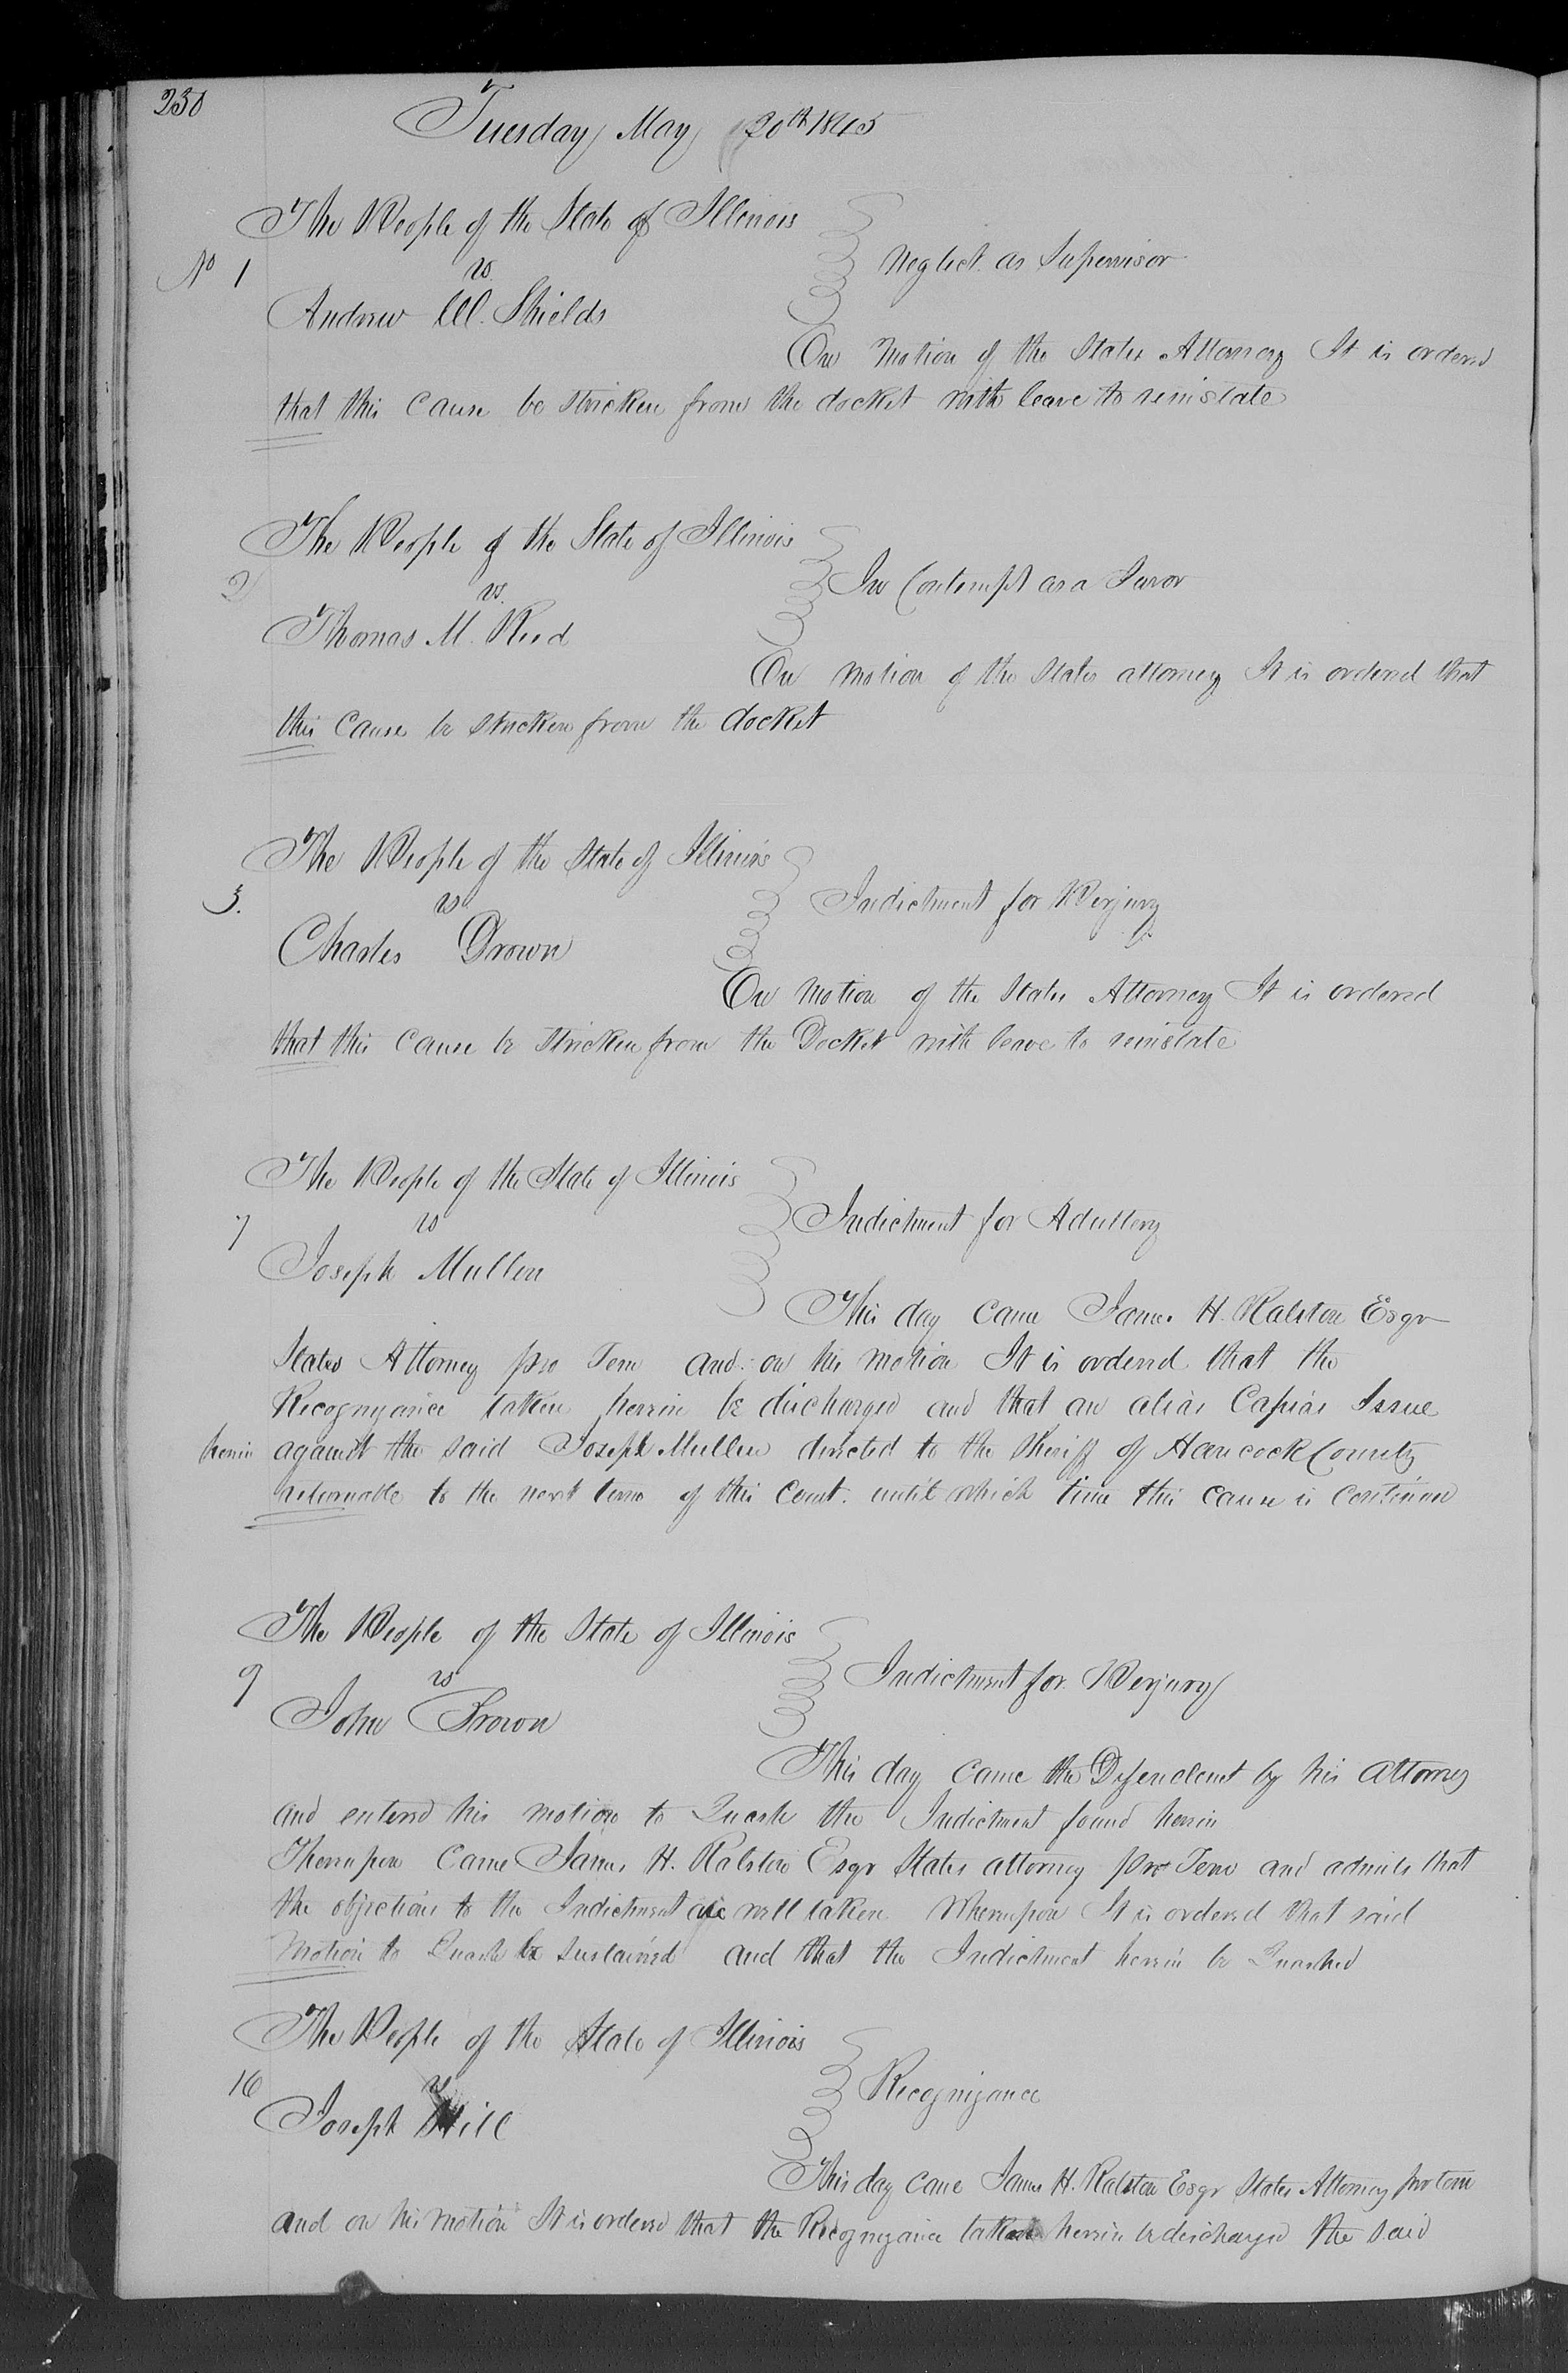 230
Tuesday May 20th 1845
The People of the State of Illinois
No 1 vs.
Neglect as Supervisor
Andrew W. Shields
On motion of the States Attorney It is ordered
that this Cause be stricken from the docket with leave to reinstate
The People of the State of Illinois
2 vs.
In Contempt as a Juror
Thomas M. Reed
On motion of the States attorney It is ordered that
this Cause be stricken from the docket
The People of the State of Illinois
3. vs.
Indictment for Perjury
Charles Drown
On motion of the States Attorney It is ordered
that this Cause be stricken from the Docket with leave to reinstate
The People of the State of Illinois
7 vs
Indictment for Adultery
Joseph Mullen
This day came James H. Ralston Esqr
States Attorney pro Tem and on his motion It is ordered that the
Recognizance taken herein be discharged and that an alias Capias Issue
herein against the said Joseph Mullen directed to the Sheriff of Hancock County
returnable to the next term of this Court. until which time this cause is continued
The People of the State of Illinois
9 vs
Indictment for Perjury
John Brown
This day came the Defendant by his attorney
and entered his motion to Quash the Indictment found herein
Thereupon Came James H. Ralston Esqr States attorney pro Tem and admits that
the objections to the Indictment are well taken Whereupon It is ordered that said
motion to Quash be sustained and that the Indictment herein be Quashed
The People of the State of Illinois
16 vs
Recognizance
Joseph Hill
This day came James H. Ralston Esqr States Attorney pro tem
and on his motion It is ordered that the Recognizance taken herein be discharged the said